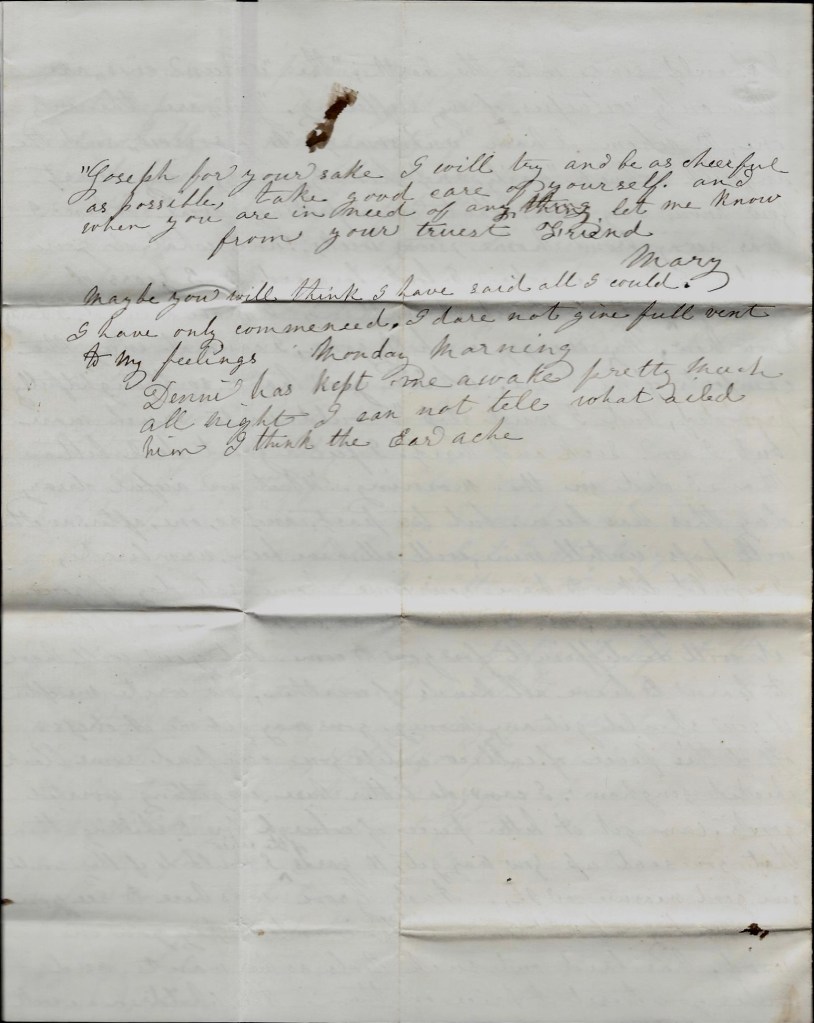 "Joseph for your sake I will try and be as cheerful
as possible, take good care of yourself. and
when you are in need of any thing let me know
from your truest Friend
Mary
Maybe you will think I have said all I could.
I have only commenced. I dare not give full vent
to my feelings Monday Morning
Denni has kept me awake pretty much
all night I can not tele what ailed
him I think the Ear ache